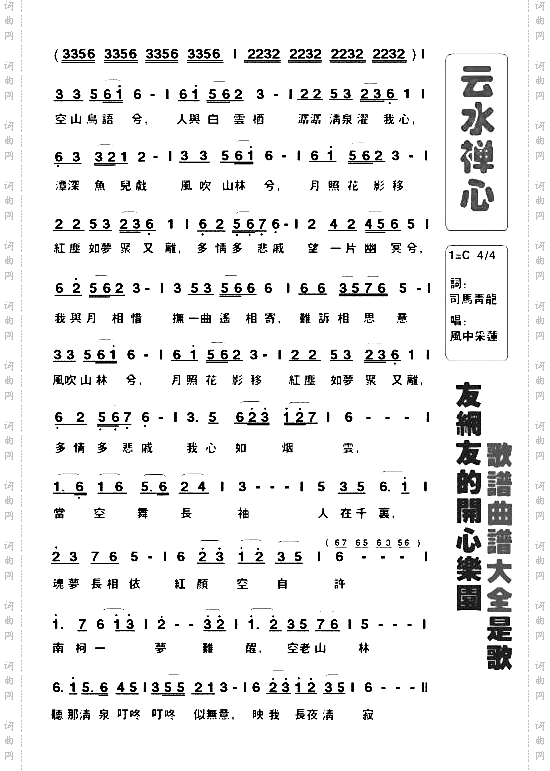 云水禅心
1=C 4/4
詞:
司馬青龍
唱:
風中采蓮
(3356 3356 3356 3356 | 2232 2232 2232 2232 )|
3 3 5 6 1 6 - | 6 1 5 6 2 3 - | 2 2 5 3 2 2 3 6 1 |
空山鳥語 兮， 人與白 雲栖 潺潺 清泉濯 我心，
6 3 3 3 2 1 2 - | 3 3 5 6 1 6 - | 6 1 5 6 2 3 - |
魚 兒戲 風吹山林 兮， 月照花 影移
2 2 5 3 2 3 6 1 | 6 2 5 6 7 6 - | 2 4 2 4 5 6 5 |
紅塵 如夢 聚 又 離， 多 情多 悲戚 望 一片 幽 冥兮，
我與月 相惜 撫一曲 遙 相寄， 難訴相 思 意
風吹山林 兮， 月照花 影移 紅塵 如夢 聚 又離，
6 2 5 6 7 6 - | 3. 5 6 2 3 1 2 7 | 6 - - - |
多情多 悲戚 我心 如 烟 雲，
1. 6 1 6 5. 6 2 4 | 3 - - - | 5 3 5 6. 1 |
當 空 舞 長 袖 人 在 千 裏，
(67 65 63 56 )
2 3 7 6 5 - | 6 2 3 1 2 3 5 | 6 - - - |
魂夢長相依 紅顏 空 自 許
1. 7 6 1 3 | 2 - - 3 2 | 1. 2 3 5 7 6 5 |
南 柯一 夢 難 醒， 空老山 林
6. 1 5. 6 4 5 | 3 5 5 2 1 3 - | 6 2 3 1 2 3 5 | 6 - - - ‖
聽 那清 泉 叮咚 叮咚 似無意， 映我 長夜清 寂
友網友的開心樂園
歌譜曲譜大全是歌
词曲网
词曲网